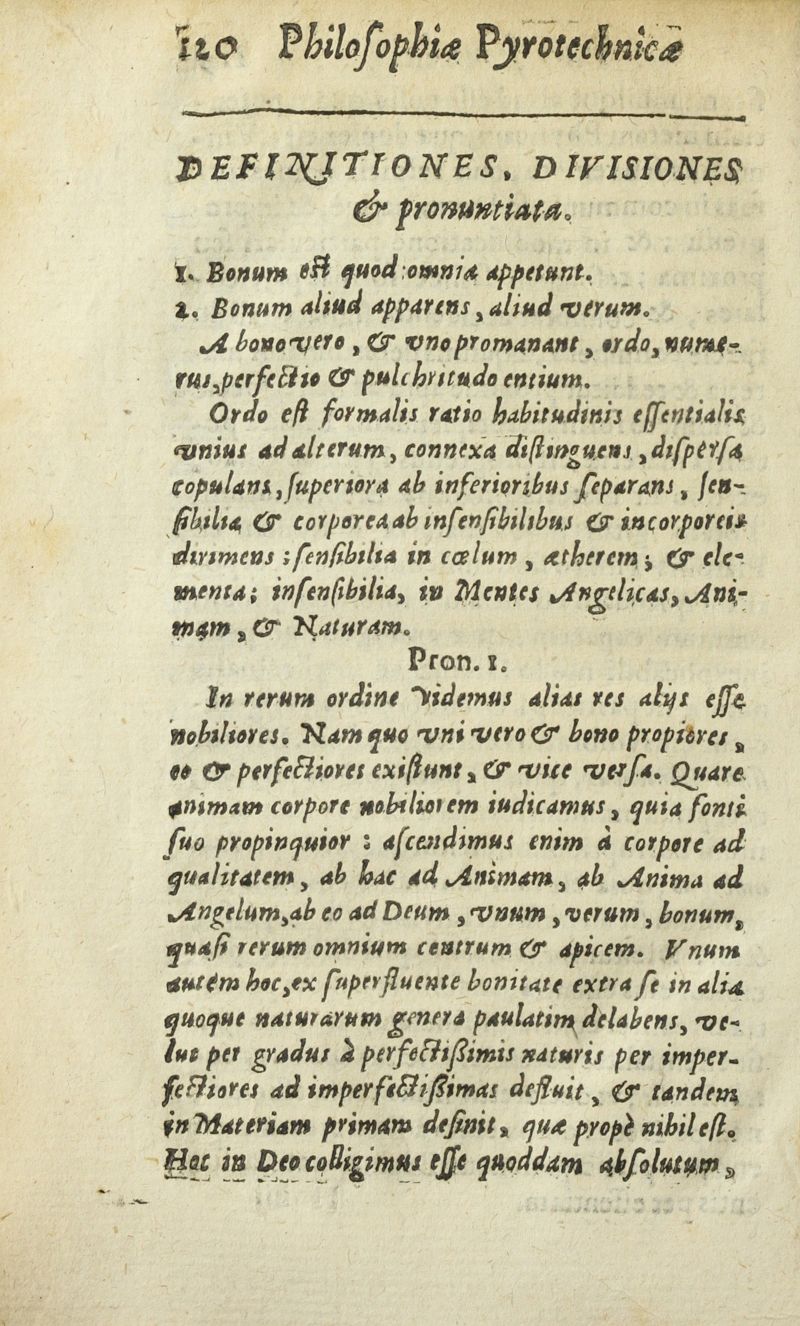 120 Philoſophiæ Pyrotechnicæ
DEFINITIONES, DIVISIONES
& pronuntiata.
1. Bonum eſt quod omnia appetunt.
2. Bonum aliud apparens, aliud verum.
A bono vero, & vno promanant, ordo, nume-
rus, perfectio & pulchritudo entium.
Ordo eſt formalis ratio habitudinis eſſentialis
vnius ad alterum, connexa diſtinguens, diſperſa
copulans, ſuperiora ab inferioribus ſeparans, ſen-
ſibilia & corporea ab inſenſibilibus & incorporeis
dirimens; ſenſibilia in cœlum, ætherem; & ele-
menta; inſenſibilia, in Mentes Angelicas, Ani-
mam, & Naturam.
Pron. 1.
In rerum ordine videmus alias res alijs eſſe
nobiliores. Nam quo vni vero & bono propiores,
eo & perfectiores exiſtunt, & vice verſa. Quare
animam corpore nobiliorem iudicamus, quia fonti
ſuo propinquior: aſcendimus enim à corpore ad
qualitatem, ab hac ad Animam, ab Anima ad
Angelum, ab eo ad Deum, vnum, verum, bonum,
quaſi rerum omnium centrum & apicem. Vnum
autem hoc, ex ſuperfluente bonitate extra ſe in alia
quoque naturarum genera paulatim delabens, ve-
lut per gradus à perfectiſsimis naturis per imper-
fectiores ad imperfectiſsimas defluit, & tandem
in Materiam primam deſinit, quæ propè nihil eſt.
Hoc in Deo colligimus eſſe quoddam abſolutum,